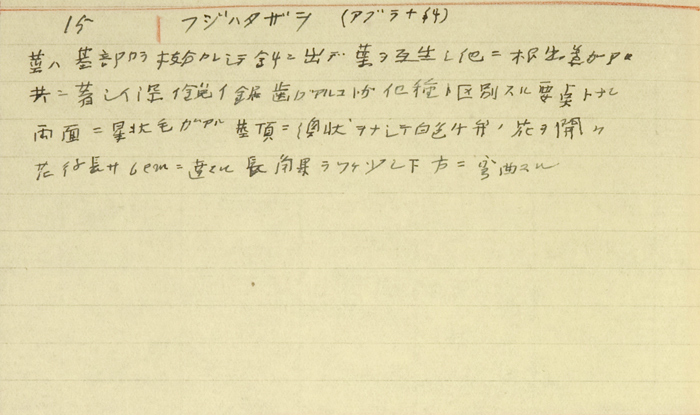 15 フジハタザヲ (アブラナ科)
茎ハ基部カラ枝分カレシテ斜ニ出デ葉ヲ互生シ他ニ根生葉ガアル
共ニ著シイ深イ鋭イ鋸歯ガアルコトガ他種ト区別スル要点トナル
両面ニ星状毛ガアル 茎頂ニ繖状ヲナシテ白色十字ノ花ヲ開ク
花後長サ6cmニ達スル長角果ヲツケ少シ下方ニ弯曲スル